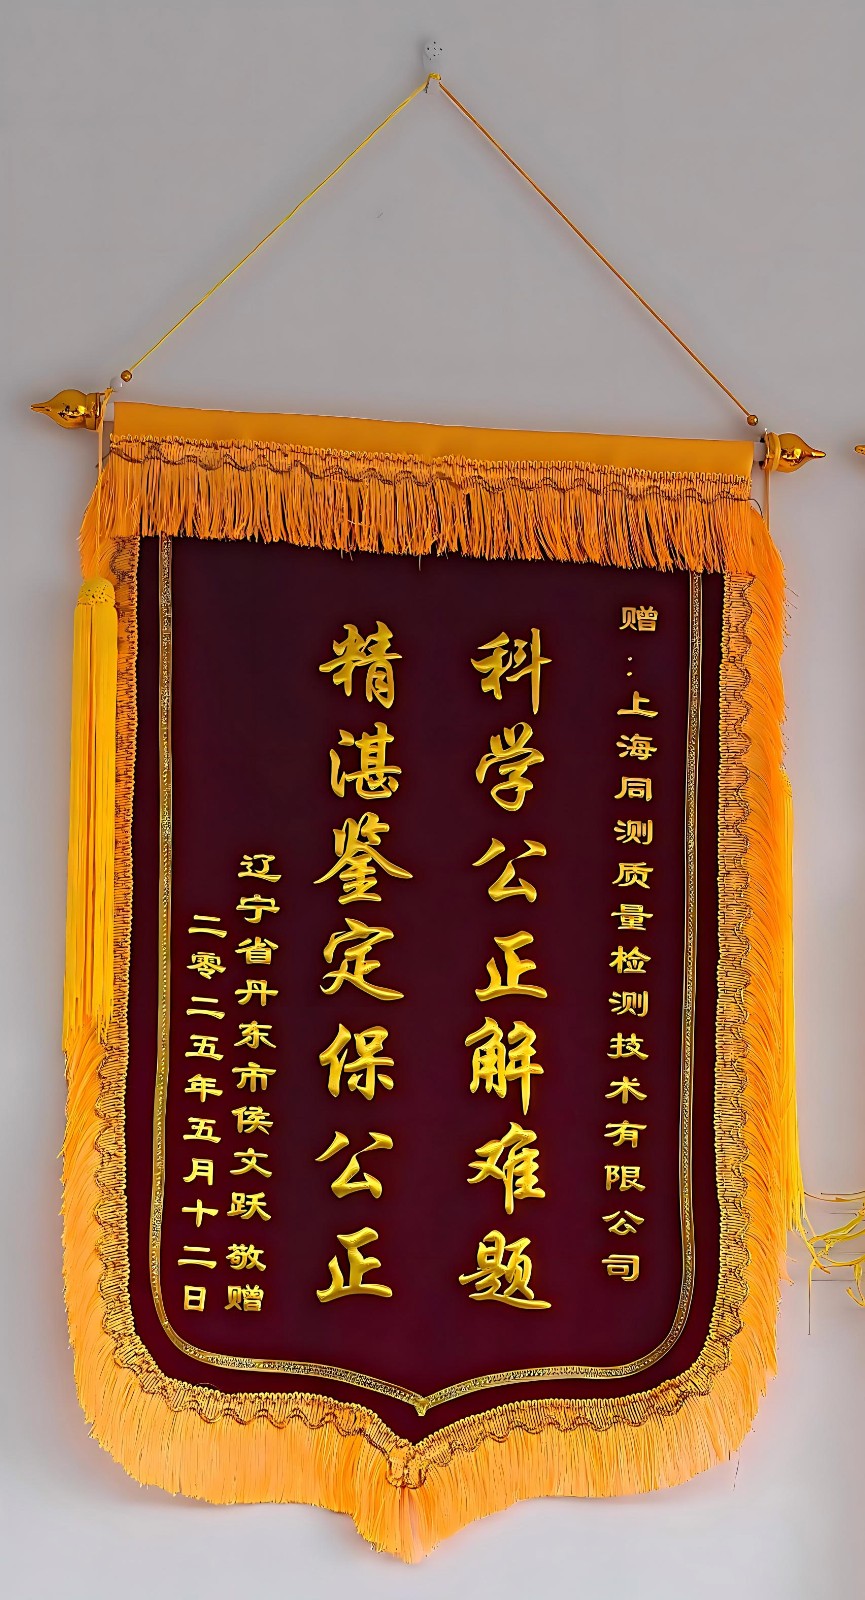 赠：上海同测质量检测技术有限公司
科学公正解难题
精湛鉴定保公正
辽宁省丹东市侯文跃 敬赠
二零二五年五月十二日